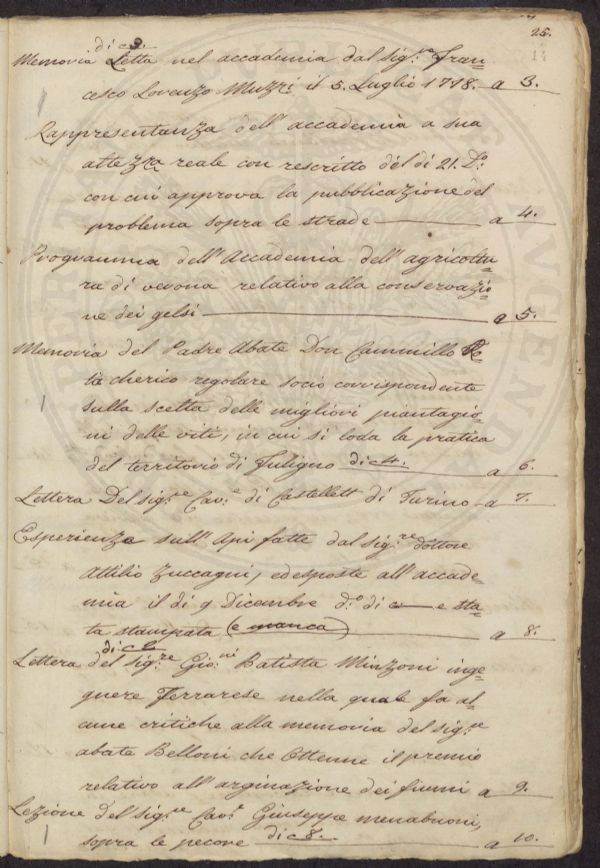 25.
14
di c 9.
Memoria Letta nel accademia dal sig.re Fran=
cesco Lorenzo Muzzi il 5. Luglio 1778. a 3.
Rappresentanza dell'accademia a sua
altezza reale con rescritto del dì 21. D.o
con cui approva la pubblicazione del
problema sopra le strade a 4.
Programma dell'Accademia dell'agricoltu=
ra di verona relativo alla conservazio=
ne dei gelsi a 5.
Memoria del Padre Abate Don Cammillo
cherico regolare socio corrispondente
sulla scelta delle migliori piantagio=
ni delle viti, in cui si loda la pratica
del territorio di Fuligno di c 4. a 6.
Lettera Del sig.re Cav.e di Castellett di Turino a 7.
Esperienze sull'Api fatte dal sig.re dottore
Attilio Zuccagni, ed esposte all'accade=
mia il dì 9 Dicembre d.o di c e sta=
ta stampata (e manca) a 8.
di c
Lettera del sig.re Gio.ni Batista Minzoni inge=
gnere Ferrarese nella quale fa al=
cune critiche alla memoria del sig.re
abate Belloni che Ottenne il premio
relativo all'arginazione dei fiumi a 9.
Lezione del sig.re Cav.e Giuseppe menabuoni,
sopra le pecore di c 8. a 10.